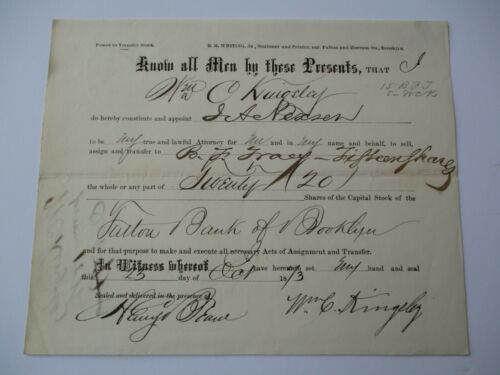 Power to Transfer Stock. R. M. WHITING, Jr., Stationer and Printer, cor. Fulton and Sts., Brooklyn
Know all Men by these Presents, THAT I
Wm C Kingsley
15 B F T
do hereby constitute and appoint
to be my true and lawful Attorney for me and in my name and behalf, to sell,
assign and transfer to B. F. Tracy – Fifteen Shares
the whole or any part of Twenty (20)
Shares of the Capital Stock of the
Fulton Bank of Brooklyn
and for that purpose to make and execute all necessary Acts of Assignment and Transfer.
In Witness whereof I have hereunto set my hand and seal
this 25 day of Oct 1873
Sealed and delivered in the presence of
Wm. C. Kingsley